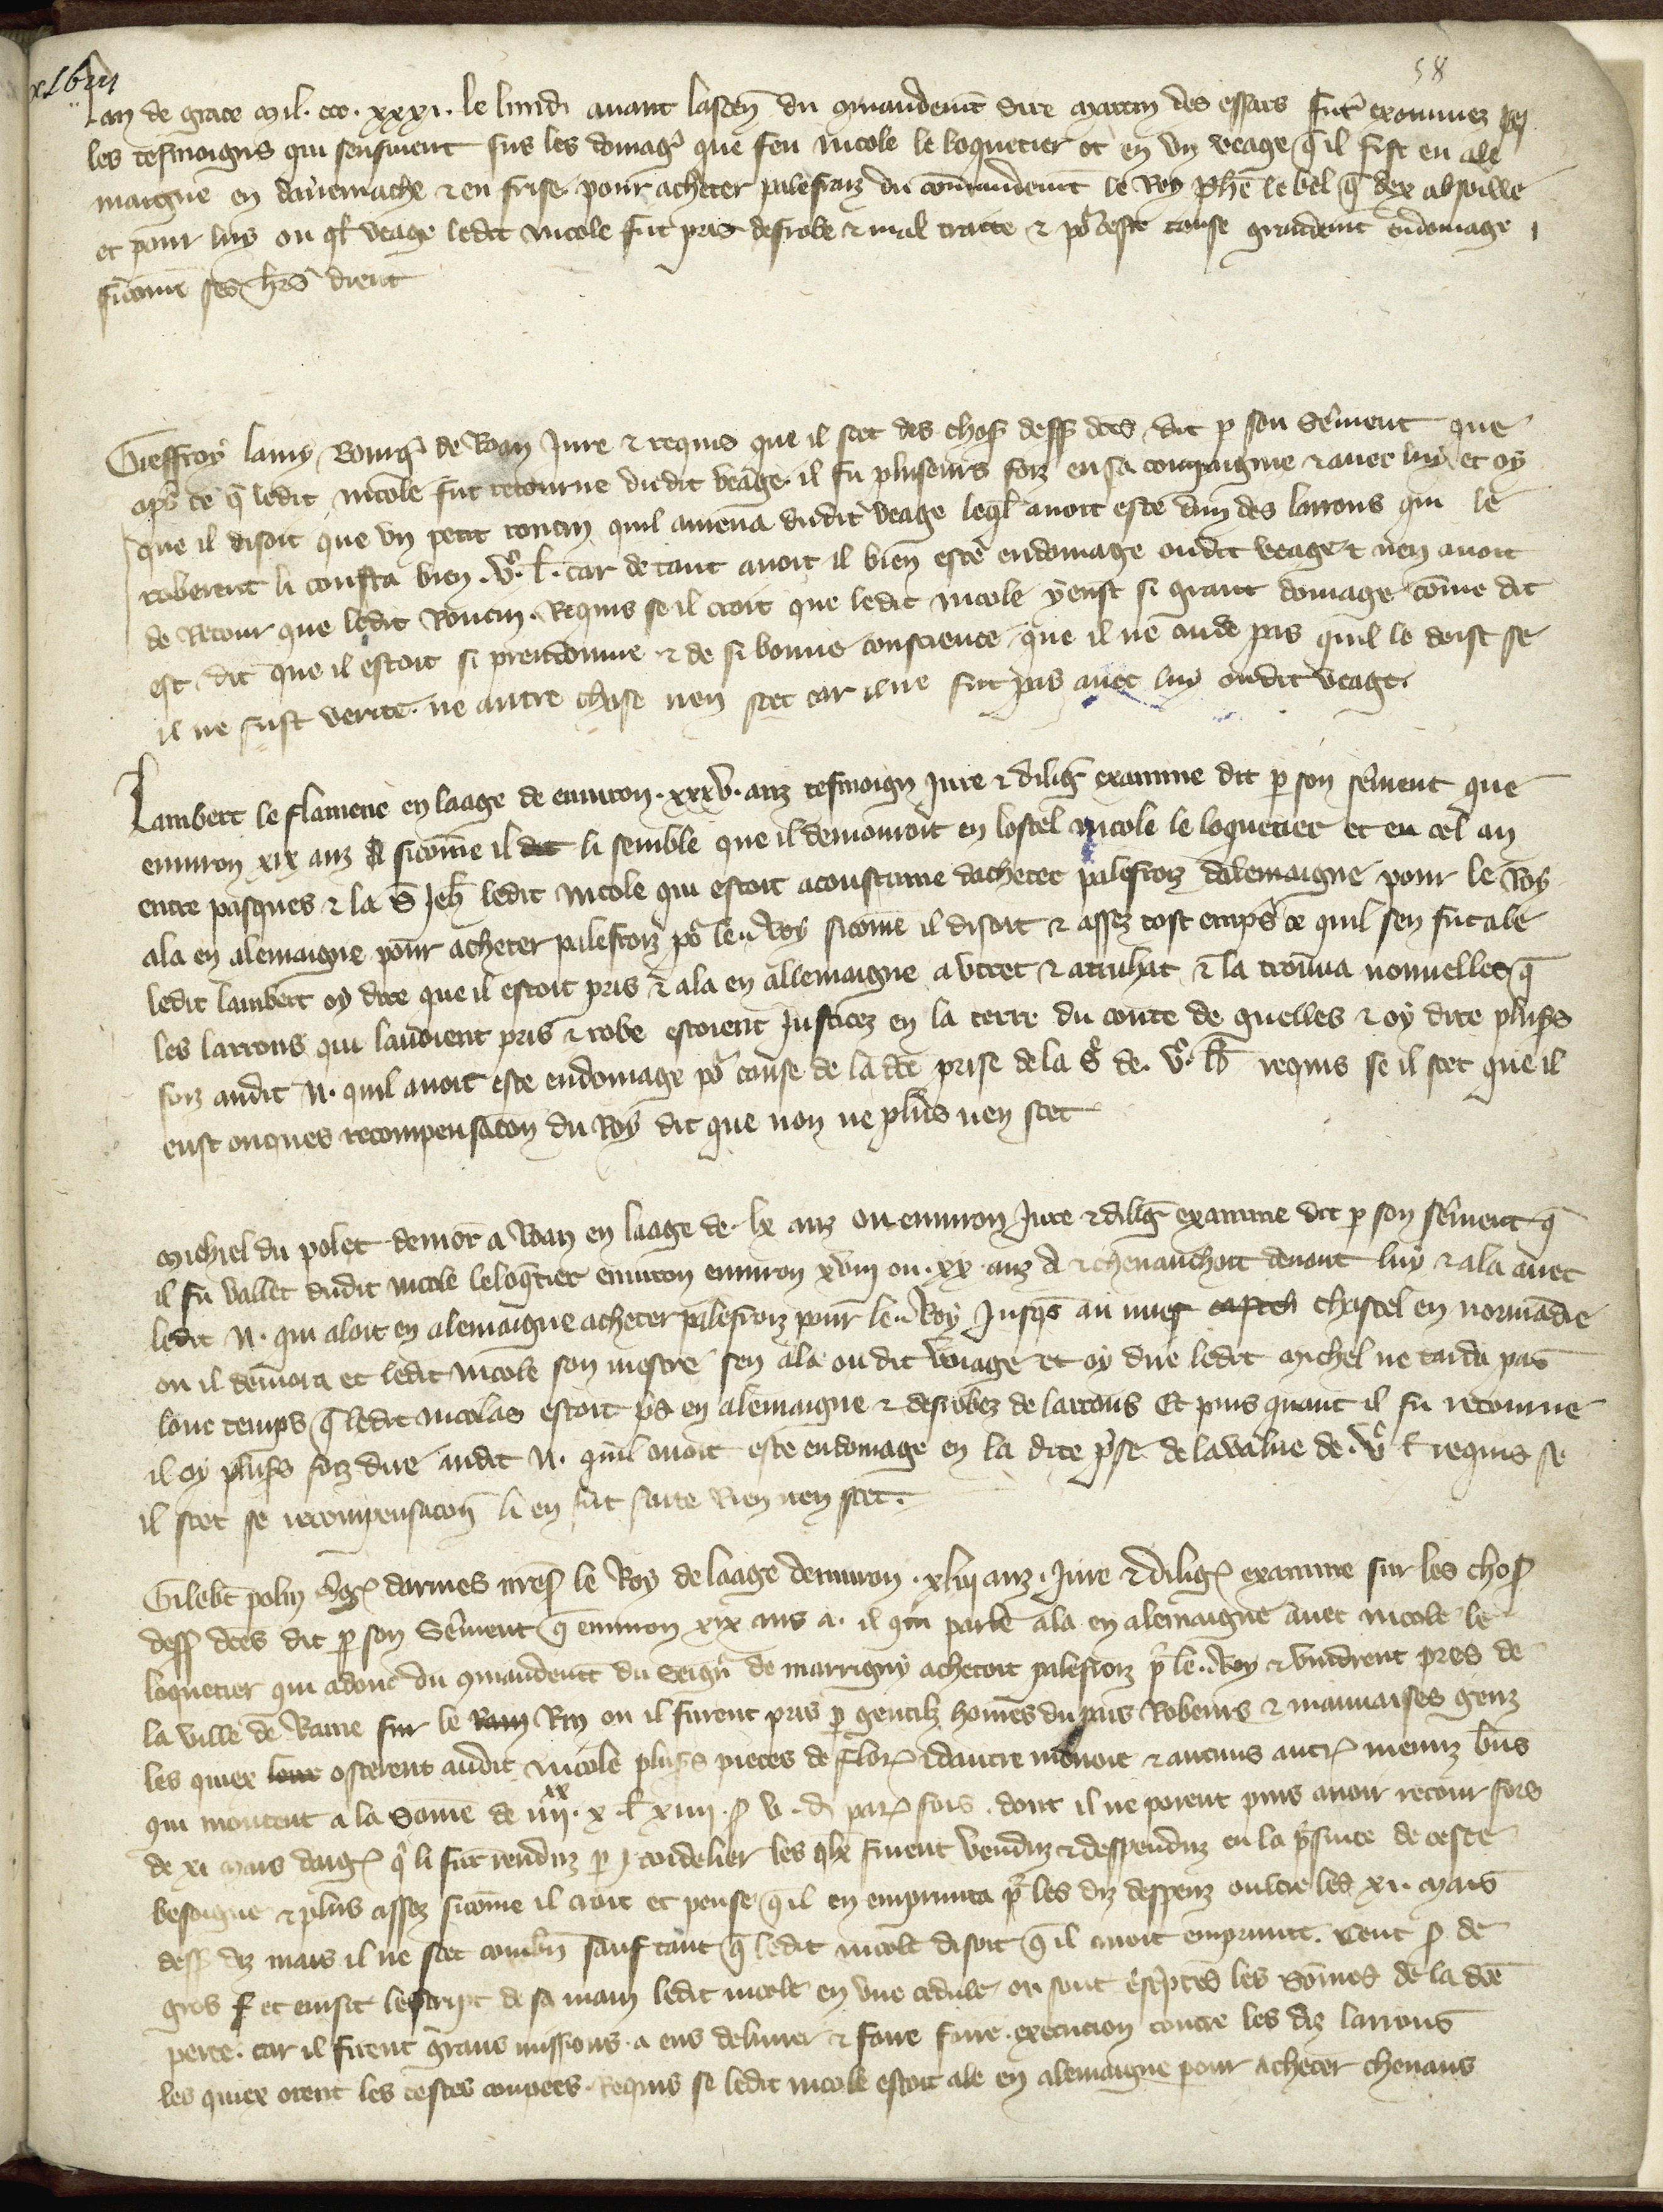 xlviii
58
Lan de grace mil. ccc. xxxi. le lundi avant lascen du cmandemt Sire Martin des essars fut examinez
les tesmoigns qui sensivent sus les domag que feu Nicole le loquetier ot en un veage q il fist en ale
maigne en danemache & en frise pour acheter palefraiz du comandemt le Roy Phe le bel q dex absoille
et pour luy ou ql veage ledit Nicole fut pris desrobe & mal traitte & po ceste cause grandemt endomage
sicome ses hrs dient
Gieffroy lamy Bourg de Roan Jure & requis que il scet des chos dess dces dit p son Serment que
aps ce q ledit Nicole fut retourne dudit veage il fu pluseurs foiz en sa compaignie & avec luy et oy
que il disoit que un petit roncin quil amena dudit veage leql avoit este dun des larrons qui le
roberent li cousta bien . vc. l. car de tant avoit il bien este endomage oudit veage & nen avoit
de Retour que ledit Roncin. Requis se il croit que ledit Nicole y eust si grant domage come dit
est dit que il estoit si preudomme & de si bonne conscience que il ne cuide pas quil le deist se
il ne fust verite. ne autre chose nen scet car il ne fut pas avec luy oudit veage.
Lambert le flamenc en laage de environ . xxxv. anz tesmoign Jure & dilig examine dit p son serment que
environ xix anz a sicome il dit li semble que il demouroit en lostel Nicole le loquetier et en cel an
entre pasques & la S Jeh ledit Nicole qui estoit acoustume dacheter palefroiz dalemaigne pour le Roy
ala en alemaigne pour acheter palefroiz po le Roy sicome il disoit & assez tost emps ce quil sen fut ale
ledit lambert oy dire que il estoit pris & ala en allemaigne a utret & & la trouva nouvelles q
les larrons qui lavoient pris & robe estoient Justicez en la terre du conte de guelles & oy dire pluss
foiz audit N. quil avoit este endomage po cause de la dce prise de la S de . vc. lb requis se il scet que il
eust onques recompensacon du Roy dit que non ne plus nen scet
Michiel du polet demor a Roan en laage de . lx anz ou environ Jure & dilig examine dit p son serment q
il fu vallet dudit Nicole le loqtier environ environ xviii ou . xx. anz a & chevauchoit devant luy & ala avec
ledit N. qui aloit en alemaigne acheter palefroiz pour le Roy Jusqs au nuef castel chastel en normadie
ou il demora et ledit Nicole son mestre sen ala oudit veiage et oy dire ledit Michel ne tarda pas
lonc temps q ledit Nicolas estoit ps en alemaigne & desrobez de larrons Et puis quant il fu retourne
il oy pluss foiz dire audit N. quil avoit este endomage en la dite pse de la value de . vc l requis se
il scet se recompensacon li en fut faite Rien nen scet.
Gilebt polin Sg darmes nres le Roy de laage denviron . xliii anz . Jure & dilig examine sur les chos
dess dces dit p son Serment q environ xix ans a. il qui parle ala en alemaigne avec Nicole le
loquetier qui adonc du cmandemt du Seign de marrigny achetoit palefroiz p le Roy & vindrent pres de
la ville de Rame sur le Rain Rin ou il furent pris p gentilz homes du pais Robeurs & mauvaises genz
les quiex leur osterent audit Nicole pluss pieces de flor & dautre monoie & aucuns autr menuz bns
qui montent a la Some de iiii xx. x. l xiiii . s v . d par fois . dont il ne porent puis avoir retour fors
de xi mars darg q li fut renduz p j cordelier les qlx furent venduz & despenduz en la psuite de ceste
besoigne & plus assez sicome il croit et pense q il en emprunta p les diz despenz oultre les xi. mars
dess diz mais il ne scet combn sauf tant q ledit Nicole disoit q il avoit emprunte. Cent s de
gros et ensit lescript de sa main ledit Nicole en une cedule ou sont escptes les Somes de la dce
perte. car il firent grans missions a eus delivrer & faire faire execucion contre les diz larrons
les quiex orent les testes coupees. Requis se ledit Nicole estoit ale en alemaigne pour acheter chevaus